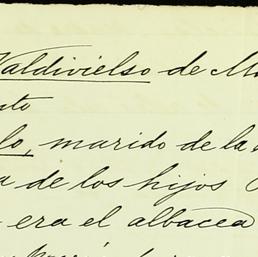 Valdivielso de M
to
lo, marido de la
a de los hijos
era el albacea